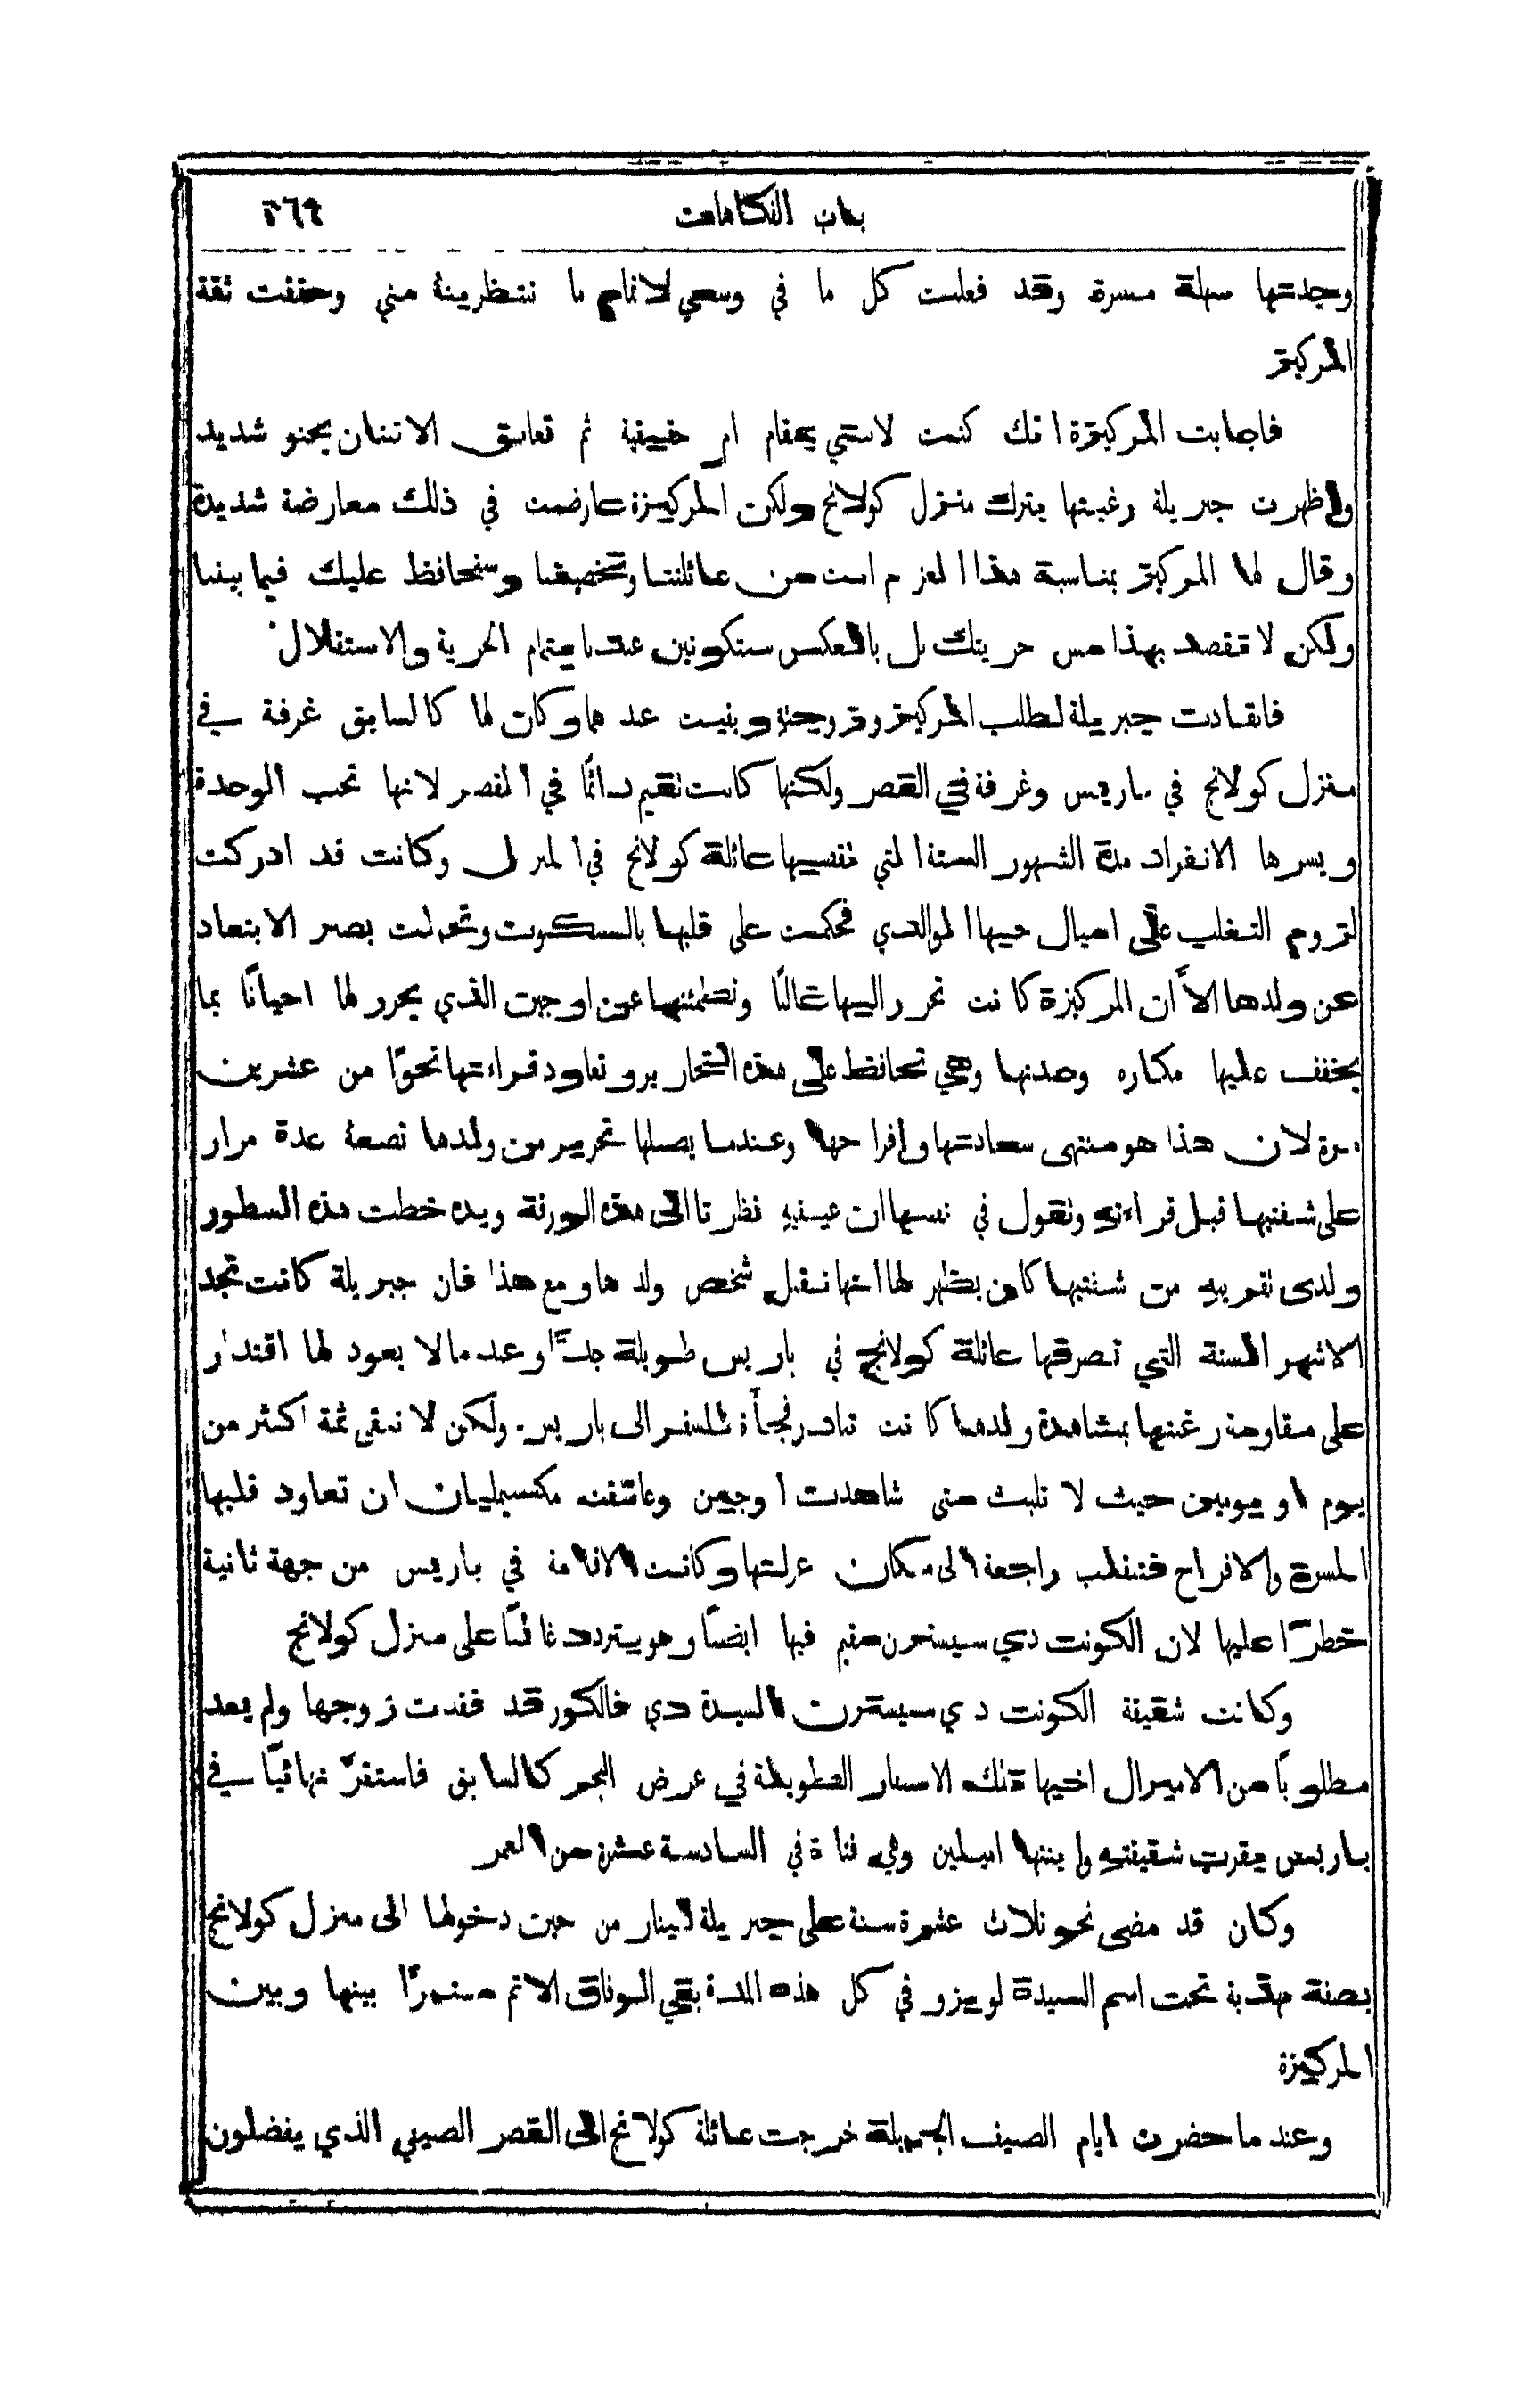 باب الفكاهات ٥٦٩
وجدتها سهلة مسرة وقد فعلت كل ما في وسعي لاتمام ما ننتظرينهُ مني وحققت ثقة
المركيزة
فاجابت المركيزة انك كنت لابنتي بمقام ام حقيقية ثم تعانق الاثنتان بحنو شديد
واظهرت جبريلة رغبتها بترك منزل كولانج ولكن المركيزة عارضت في ذلك معارضة شديدة
وقال لها المركيز بمناسبة هذا العزم انت من عائلتنا وتخصيننا وسنحافظ عليك فيما بيننا
ولكن لا نقصد بهذا مس حريتك بل بالعكس ستكونين عندنا بتمام الحرية والاستقلال
فانقادت جبريلة لطلب المركيز وزوجته وبقيت عندهما وكان لها كالسابق غرفة في
منزل كولانج في باريس وغرفة في القصر ولكنها كانت نقيم دائمًا في القصر لانها تحب الوحدة
ويسرها الانفراد مدة الشهور الستة التي نقضيها عائلة كولانج في المنزل وكانت قد ادركت
لزوم التغلب على اميال حبها الوالدي فحكمت على قلبها بالسكوت وتحملت بصبر الابتعاد
عن ولدها الاَّ ان المركيزة كانت تحرر اليها غالبًا ونطمئنها عن اوجين الذي يحرر لها احيانًا بما
يخفف عليها مكاره وحدتها وهي تحافظ على هذه التحارير وتعاود قراءتها نحوًا من عشرين
مرة لان هذا هو منتهى سعادتها وافراحها وعندما يصلها تحرير من ولدها تضعهُ عدة مرار
على شفتيها قبل قراءته ونقول في نفسها ان عينيهِ نظرتا الى هذه الورقة ويده خطت هذه السطور
ولدى نقريبه من شفتيها كان يظهر لها انها نقبل شخص ولدها ومع هذا فان جبريلة كانت تجد
الاشهر الستة التي تصرفها عائلة كولانج في باريس طويلة جدًّا وعندما لا يعود لها اقتدار
على مقاومة رغبتها بمشاهدة ولدها كانت تبادر فجأة للسفر الى باريس. ولكن لا نبقى ثمة اكثر من
يوم او يومين حيث لا تلبث متى شاهدت اوجين وعانقت مكسيمليان ان تعاود قلبها
المسرة والافراح فتنقلب راجعة الى مكان عزلتها وكانت الاقامة في باريس من جهة ثانية
خطرًا عليها لان الكونت دي سيسترن مقيم فيها ايضًا وهو يتردد غالبًا على منزل كولانج
وكانت شقيقة الكونت دي سيسترن السيدة دي فالكور قد فقدت زوجها ولم يعد
مطلوبًا من الاميرال اخيها تلك الاسفار الطويلة في عرض البحر كالسابق فاستقرَّ نهائيًّا في
باريس بقرب شقيقته وابنتها اميلين وهي فتاة في السادسة عشرة من العمر
وكان قد مضى نحو ثلاث عشرة سنة على جبريلة لينار من حين دخولها الى منزل كولانج
بصفة مهذبة تحت اسم السيدة لويزو في كل هذه المدة بقي الوفاق الاتم مستمرًّا بينها وبين
المركيزة
وعندما حضرت ايام الصيف الجميلة خرجت عائلة كولانج الى القصر الصيني الذي يفضلون